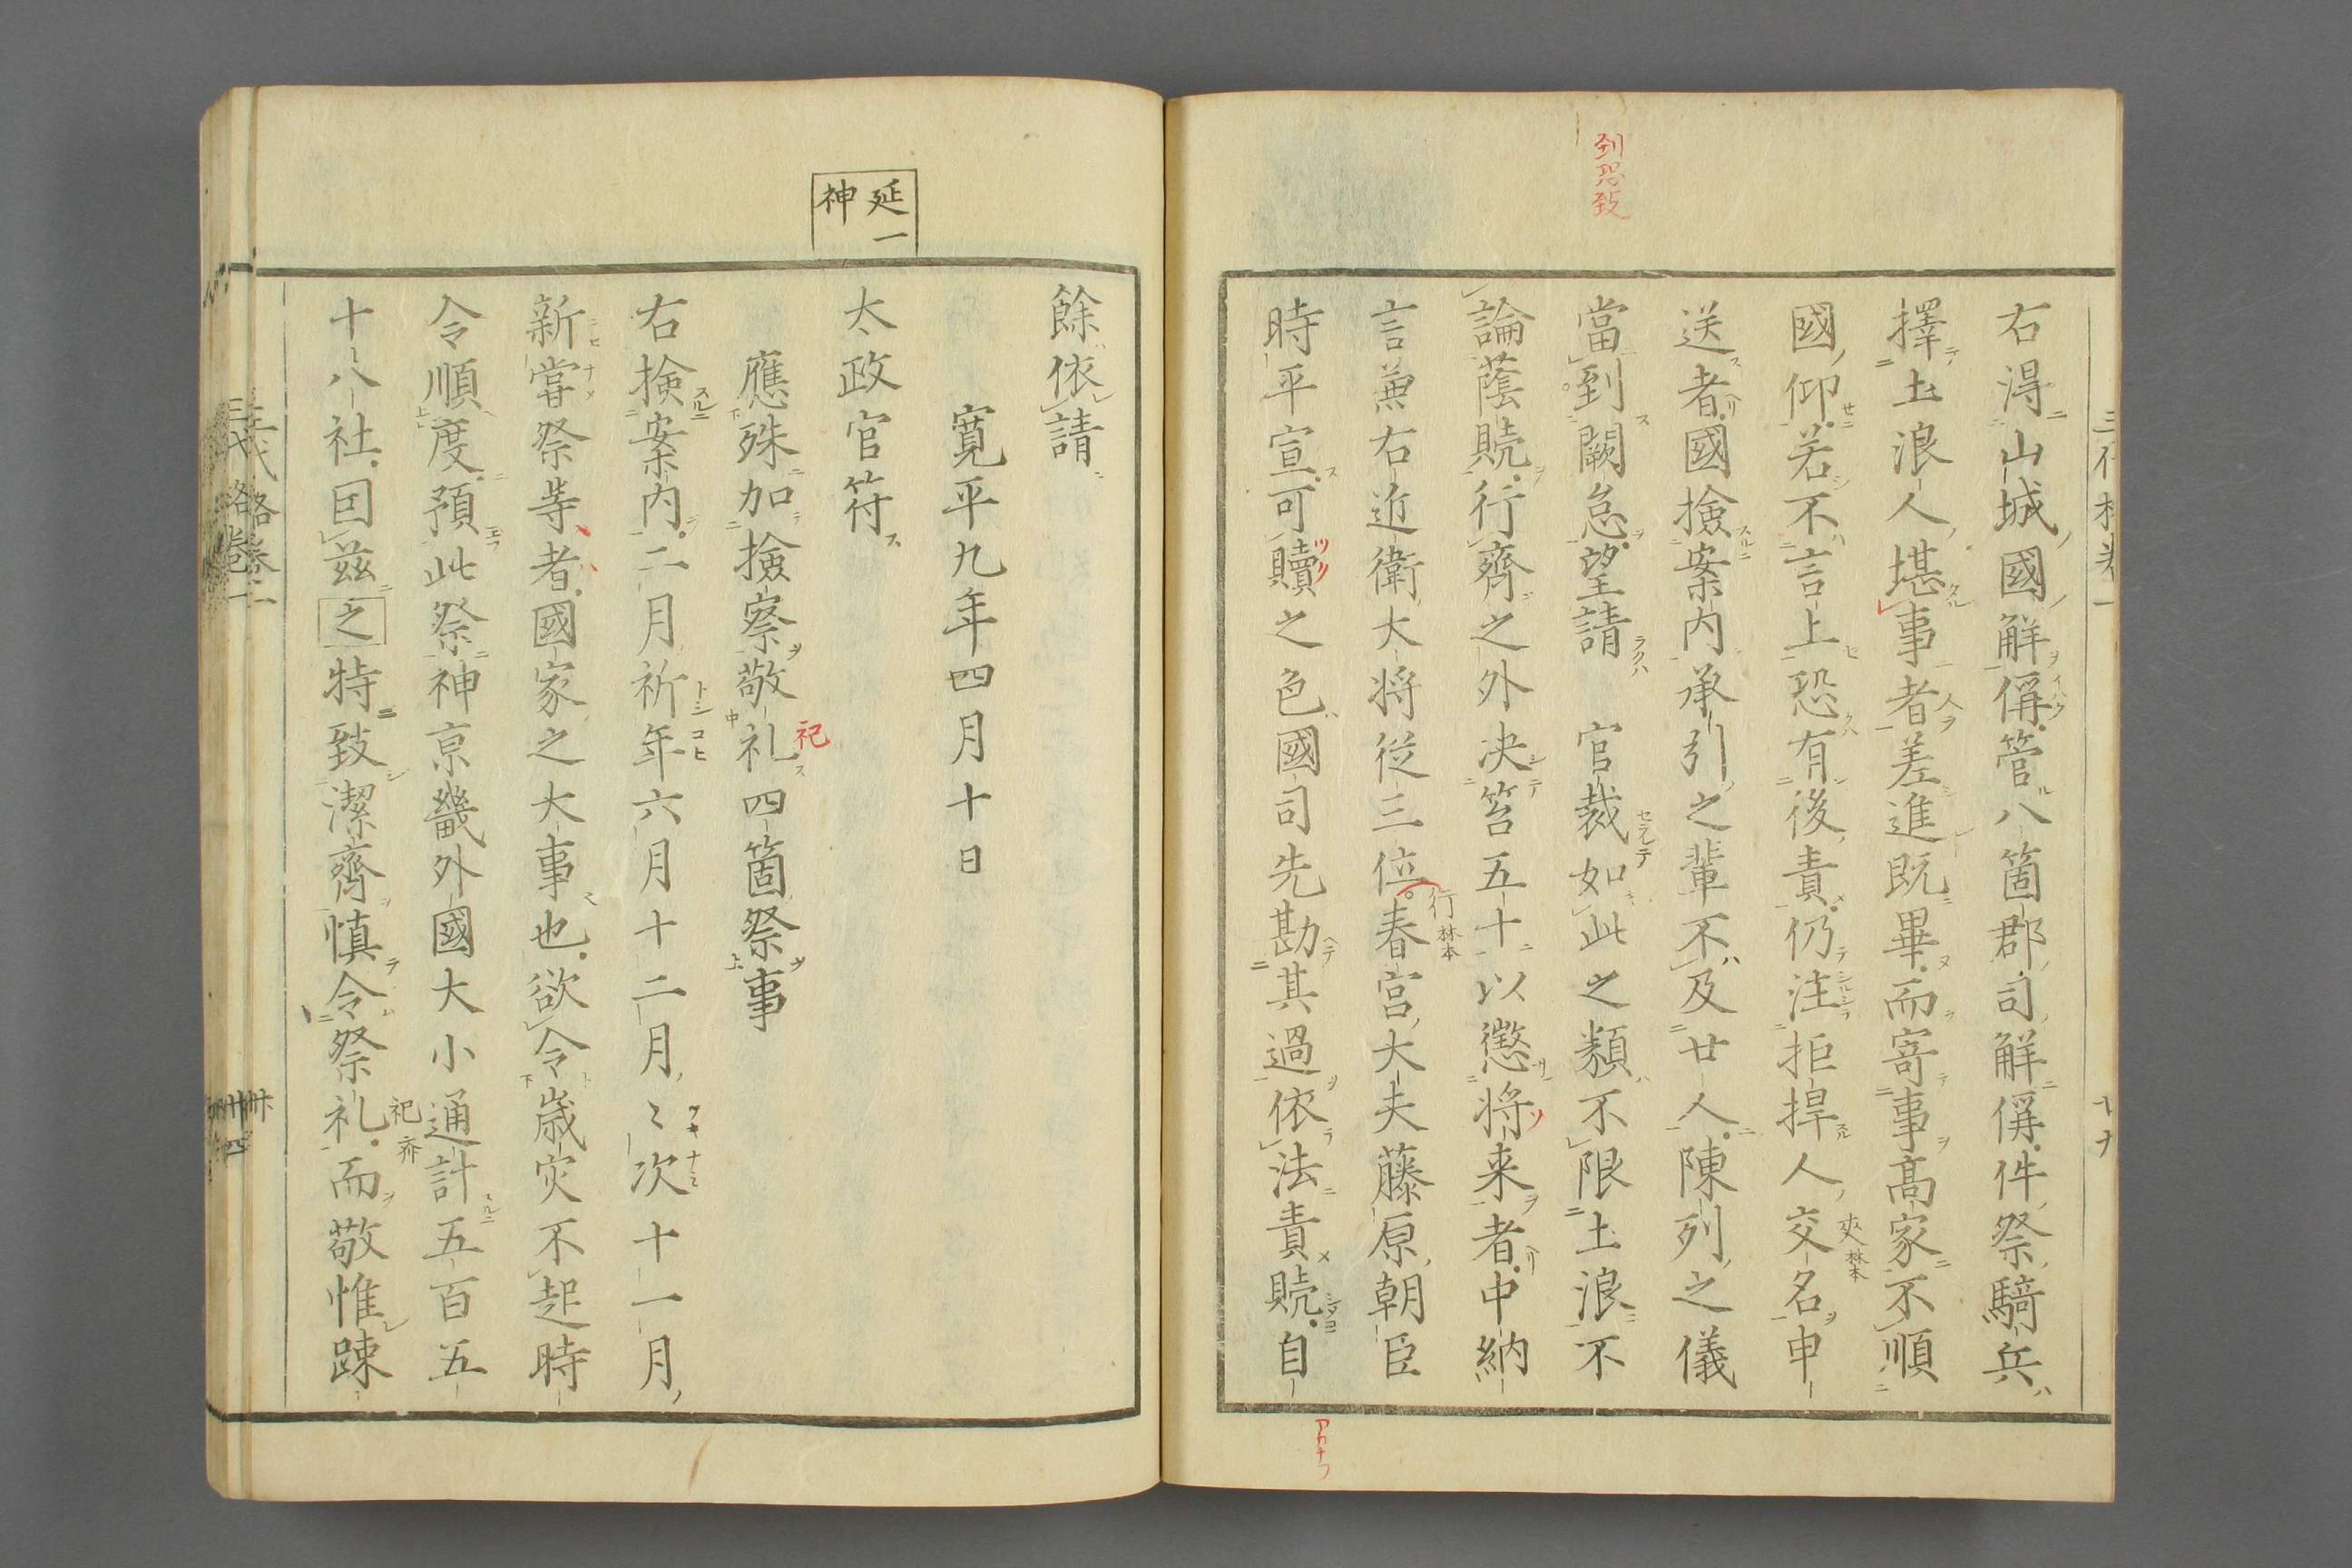 到恐致
右得山城國解偁管八箇郡司解偁件祭騎兵
擇土浪人堪事者差進既畢而寄事髙家不順
國仰若不言上恐有後責仍注拒捍人交名申
夾林本
送者國撿案内承引之輩不及廿人陳列之儀
當到闕怠望請 官裁如此之類不限土浪不
論蔭贖行齊之外决笞五十以懲将来者中納
言兼右近衛大将従三位春宮大夫藤原朝臣
行林本
時平宣可贖之色國司先勘其過依法責贖自
アカナフ
延一
神
餘依請
寛平九年四月十日
太政官符
應殊加撿察敬礼四箇祭事
祀
右撿案内二月祈年六月十二月〻次十一月
新甞祭等者國家之大事也欲令歳灾不起時
令順度預此祭神京畿外國大小通計五百五
十八社因茲之特致潔齊慎令祭礼而敬惟踈
祀齊